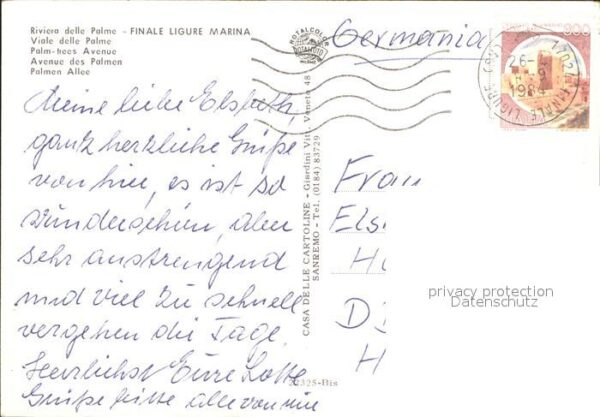 Riviera delle Palme - FINALE LIGURE MARINA
Viale delle Palme
Palm-tees Avenue
Avenue des Palmen
Palmen Allee
ROTALCOLOR
ROTALFOTO
MILANO
Germania
300
17024 FINALE LIGURE (SV)
26-
9
1984
Meine liebe Elsbeth,
ganz herzliche Grüße
von hier, es ist so
wunderschön, aber
sehr anstrengend
und viel zu schnell
vergehen die Tage.
Herzlichst Eure Lotte
Grüße bitte alle von mir
CASA DELLE CARTOLINE - Giardini Vitt. Veneto 48
SANREMO - Tel. (0184) 83729
Frau
Els
H
D
H
privacy protection
Datenschutz